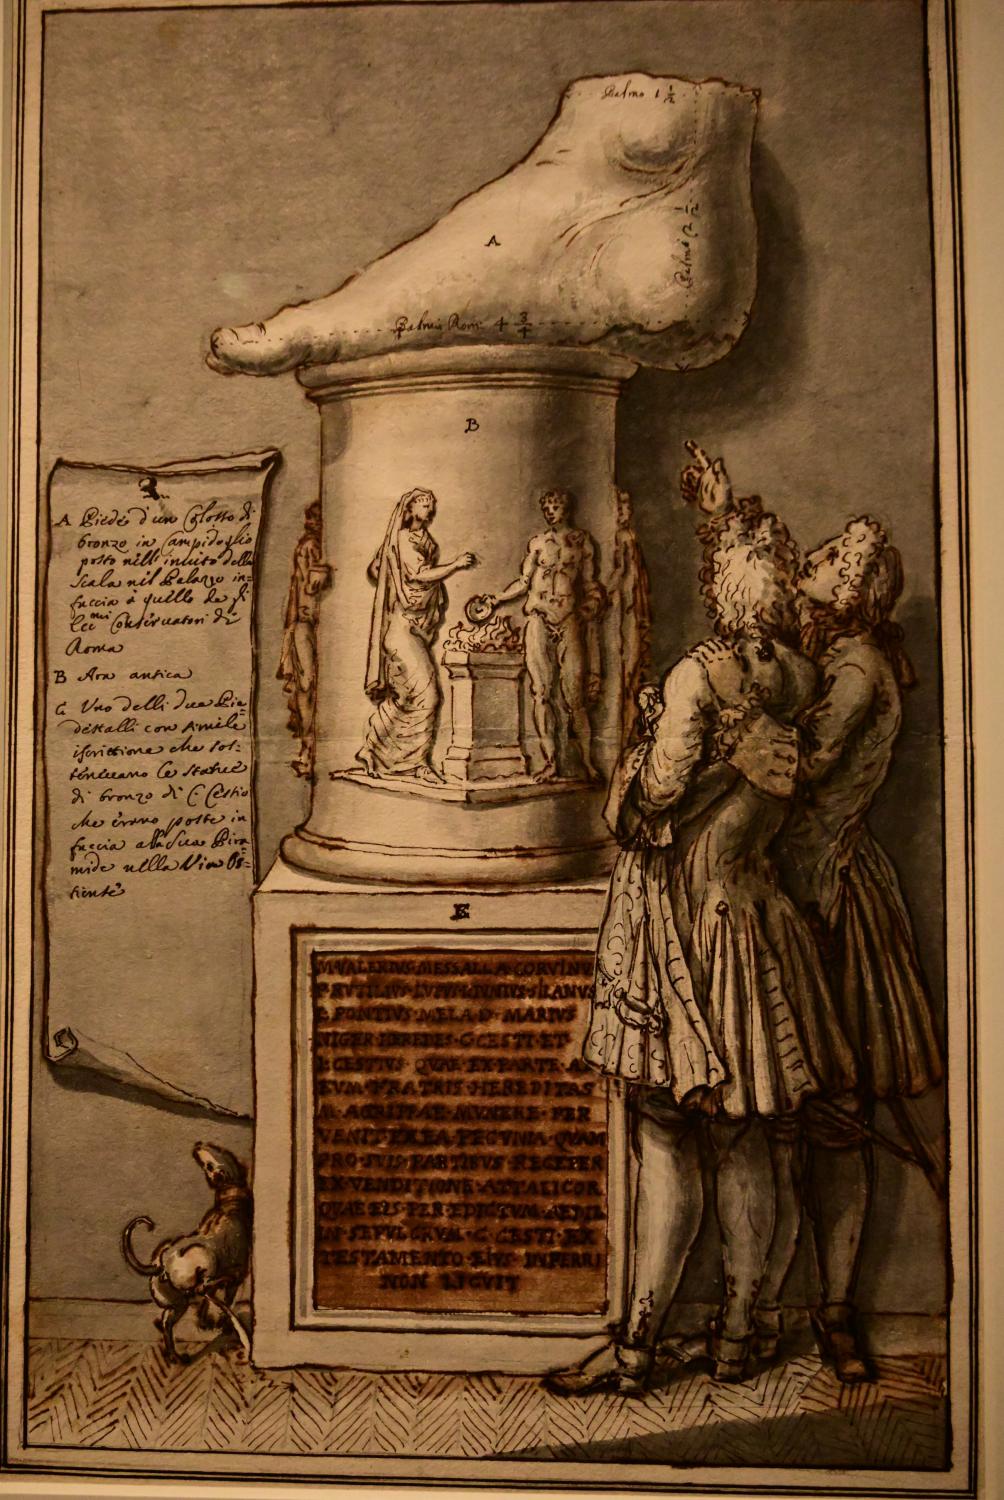 Palmo 1 1/2
A
Palmi 2 1/2
Palmi Rom: 4 3/4
B
A Piede d'un Colosso di
bronzo in Campidoglio
posto nell'
scala nel Palazzo in=
faccia à quello de Si
Conservatori di
Roma
B Ara antica
C Uno delli due Pie=
destalli con simile
iscrittione che sos=
teneuano le statue
di bronzo di C. Cestio
che erano poste in
faccia alla sua Pira=
mide nella Via Os=
tiense
M·VALERIVS·MESSALLA·CORVINV
P·RVTILIVS·LVPVS·L·IVNIVS·SILANVS
L·PONTIVS·MELA·D·MARIVS
NIGER·HEREDES·C·CESTI·ET
L·CESTIVS·QVAE·EX·PARTE·A
EVM·FRATRIS·HEREDITAS
M·AGRIPPAE·MVNERE·PER
VENIT·EX·EA·PECVNIA·QVAM
PRO·SVIS·PARTIBVS·RECEPER
EX·VENDITIONE·ATTALICOR
QVAE·EIS·PER·EDICTVM·AEDIL
IN·SEPVLCRVM·C·CESTI·EX
TESTAMENTO·EIVS·INFERRI
NON LICVIT